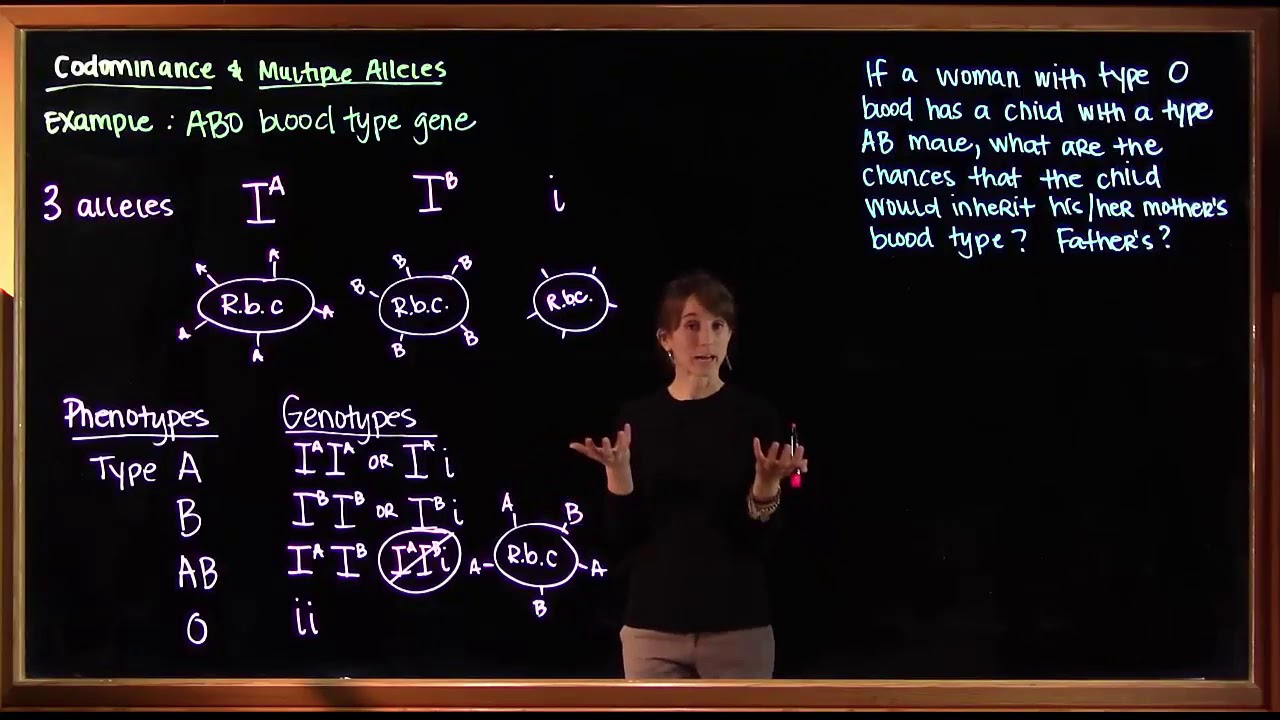 Codominance & Multiple Alleles
Example : ABO blood type gene
3 alleles I^A I^B i
A A A A A R.b.c
B B B B B R.b.c.
R.b.c.
Phenotypes Genotypes
Type A I^A I^A OR I^A i
B I^B I^B OR I^B i
AB I^A I^B I^A I^B i
O ii
A B A R.b.c A B
If a woman with type O
blood has a child with a type
AB male, what are the
chances that the child
would inherit his/her mother's
blood type? Father's?